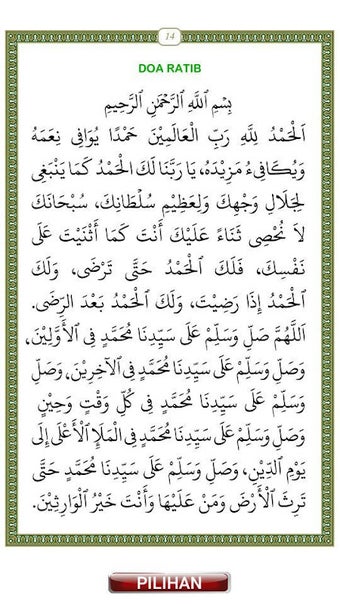 14
DOA RATIB
بِسْمِ اللَّهِ الرَّحْمَٰنِ الرَّحِيمِ
اَلْحَمْدُ لِلَّهِ رَبِّ الْعَالَمِيْنَ حَمْدًا يُوَافِي نِعَمَهُ
وَيُكَافِىءُ مَزِيْدَهُ، يَا رَبَّنَا لَكَ الْحَمْدُ كَمَا يَنْبَغِي
لِجَلَالِ وَجْهِكَ وَلِعَظِيْمِ سُلْطَانِكَ، سُبْحَانَكَ
لاَ نُحْصِي ثَنَاءً عَلَيْكَ أَنْتَ كَمَا أَثْنَيْتَ عَلَى
نَفْسِكَ، فَلَكَ الْحَمْدُ حَتَّى تَرْضَى، وَلَكَ
الْحَمْدُ إِذَا رَضِيْتَ، وَلَكَ الْحَمْدُ بَعْدَ الرِّضَى.
اَللَّهُمَّ صَلِّ وَسَلِّمْ عَلَى سَيِّدِنَا مُحَمَّدٍ فِي الْأَوَّلِيْنَ،
وَصَلِّ وَسَلِّمْ عَلَى سَيِّدِنَا مُحَمَّدٍ فِي الْآخِرِيْنَ، وَصَلِّ
وَسَلِّمْ عَلَى سَيِّدِنَا مُحَمَّدٍ فِي كُلِّ وَقْتٍ وَحِيْنٍ
وَصَلِّ وَسَلِّمْ عَلَى سَيِّدِنَا مُحَمَّدٍ فِي الْمَلَإِ الْأَعْلَى إِلَى
يَوْمِ الدِّيْنِ، وَصَلِّ وَسَلِّمْ عَلَى سَيِّدِنَا مُحَمَّدٍ حَتَّى
تَرِثَ الْأَرْضَ وَمَنْ عَلَيْهَا وَأَنْتَ خَيْرُ الْوَارِثِيْنَ.
PILIHAN